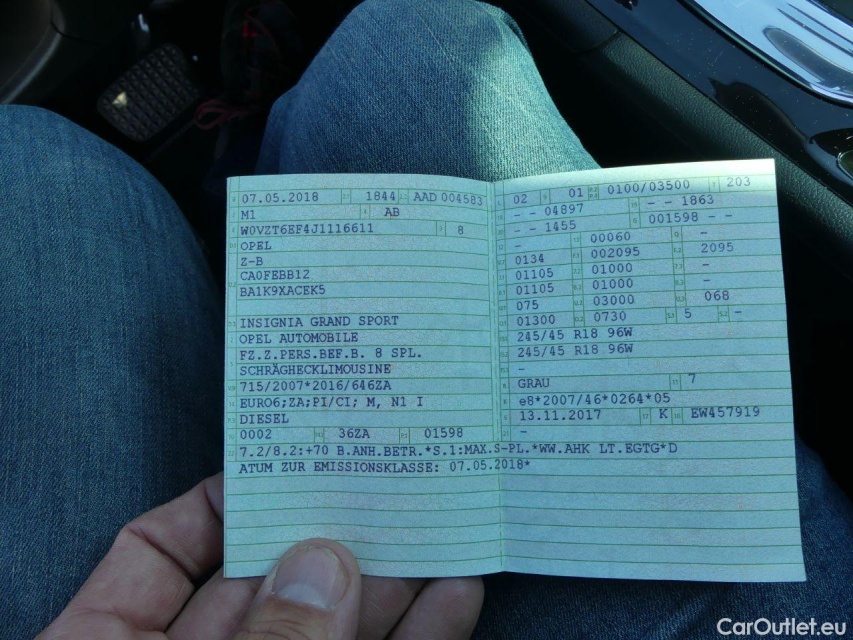 07.05.2018 1844 AAD 004583
M1 AB
W0VZT6EF4J1116611 8
OPEL
Z-B
CA0FEBB12
BA1K9XACEK5
INSIGNIA GRAND SPORT
OPEL AUTOMOBILE
FZ.Z.PERS.BEF.B. 8 SPL.
SCHRÄGHECKLIMOUSINE
715/2007*2016/646ZA
EURO6;ZA;PI/CI; M, N1 I
DIESEL
0002 36ZA 01598
02 01 0100/03500 203
- - 04897 - - 1863
- - 1455 001598 - -
- 00060 -
0134 002095 2095
01105 01000 -
01105 01000 -
075 03000 068
01300 0730 5 -
245/45 R18 96W
245/45 R18 96W
-
GRAU 7
e8*2007/46*0264*05
13.11.2017 K EW457919
-
7.2/8.2:+70 B.ANH.BETR.*S.1:MAX.S-PL.*WW.AHK LT.EGTG*D
ATUM ZUR EMISSIONSKLASSE: 07.05.2018*
CarOutlet.eu